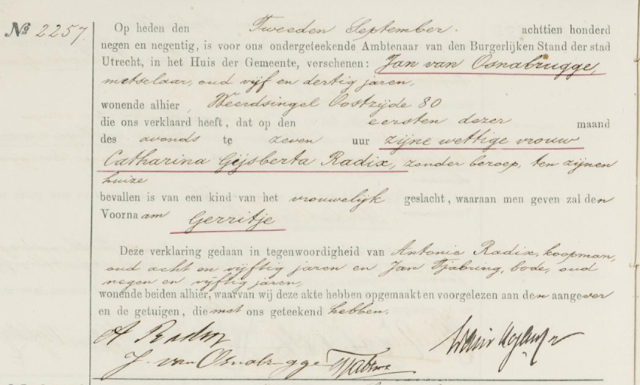 № 2257.
Op heden den Tweeden September achttien honderd
negen en negentig, is voor ons ondergeteekende Ambtenaar van den Burgerlijken Stand der stad
Utrecht, in het Huis der Gemeente, verschenen: Jan van Osnabrugge,
metselaar, oud vijf en dertig jaren,
wonende alhier Weerdsingel Oostzijde 80
die ons verklaard heeft, dat op den eersten dezer maand
des avonds te zeven uur zijne wettige vrouw
Catharina Gijsberta Radix, zonder beroep, ten zijnen
huize
bevallen is van een kind van het vrouwelijk geslacht, waaraan men geven zal den
Voornaam Gerritje
Deze verklaring gedaan in tegenwoordigheid van Antonie Radix, koopman,
oud acht en vijftig jaren en Jan Tjabring, bode, oud
negen en vijftig jaren,
wonende beiden alhier, waarvan wij deze akte hebben opgemaakt en voorgelezen aan den aangever
en de getuigen, die met ons geteekend hebben.
A Radix
J. van Osnabrugge